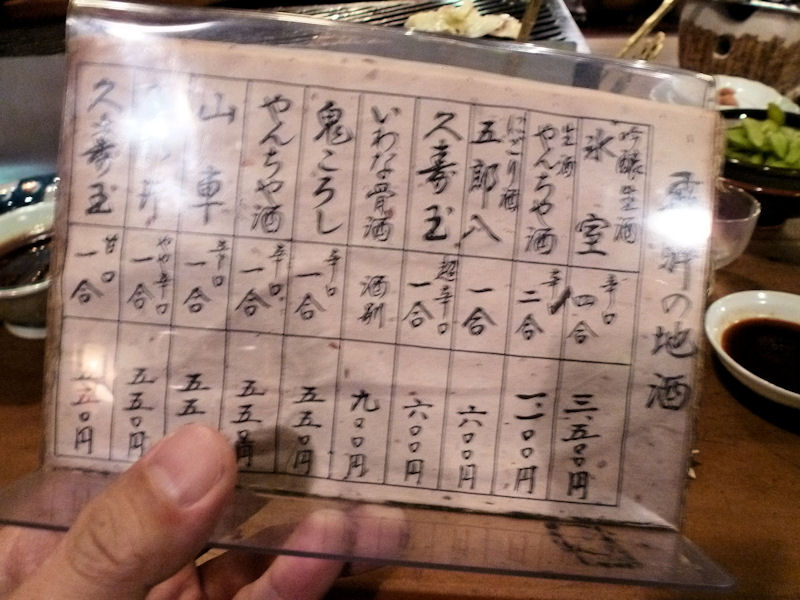 の地酒
吟醸生酒
氷室 辛口 四合 三、五〇〇円
生酒
やんちゃ酒 辛口 二合 一一〇〇円
にごり酒
五郎八 一合 六〇〇円
久寿玉 超辛口 一合 六〇〇円
いわな骨酒 酒別 九〇〇円
鬼ころし 辛口 一合 五五〇円
やんちゃ酒 辛口 一合 五五〇円
山車 辛口 一合 五五
やや辛口 一合 五五〇円
久寿玉 甘口 一合 五五〇円